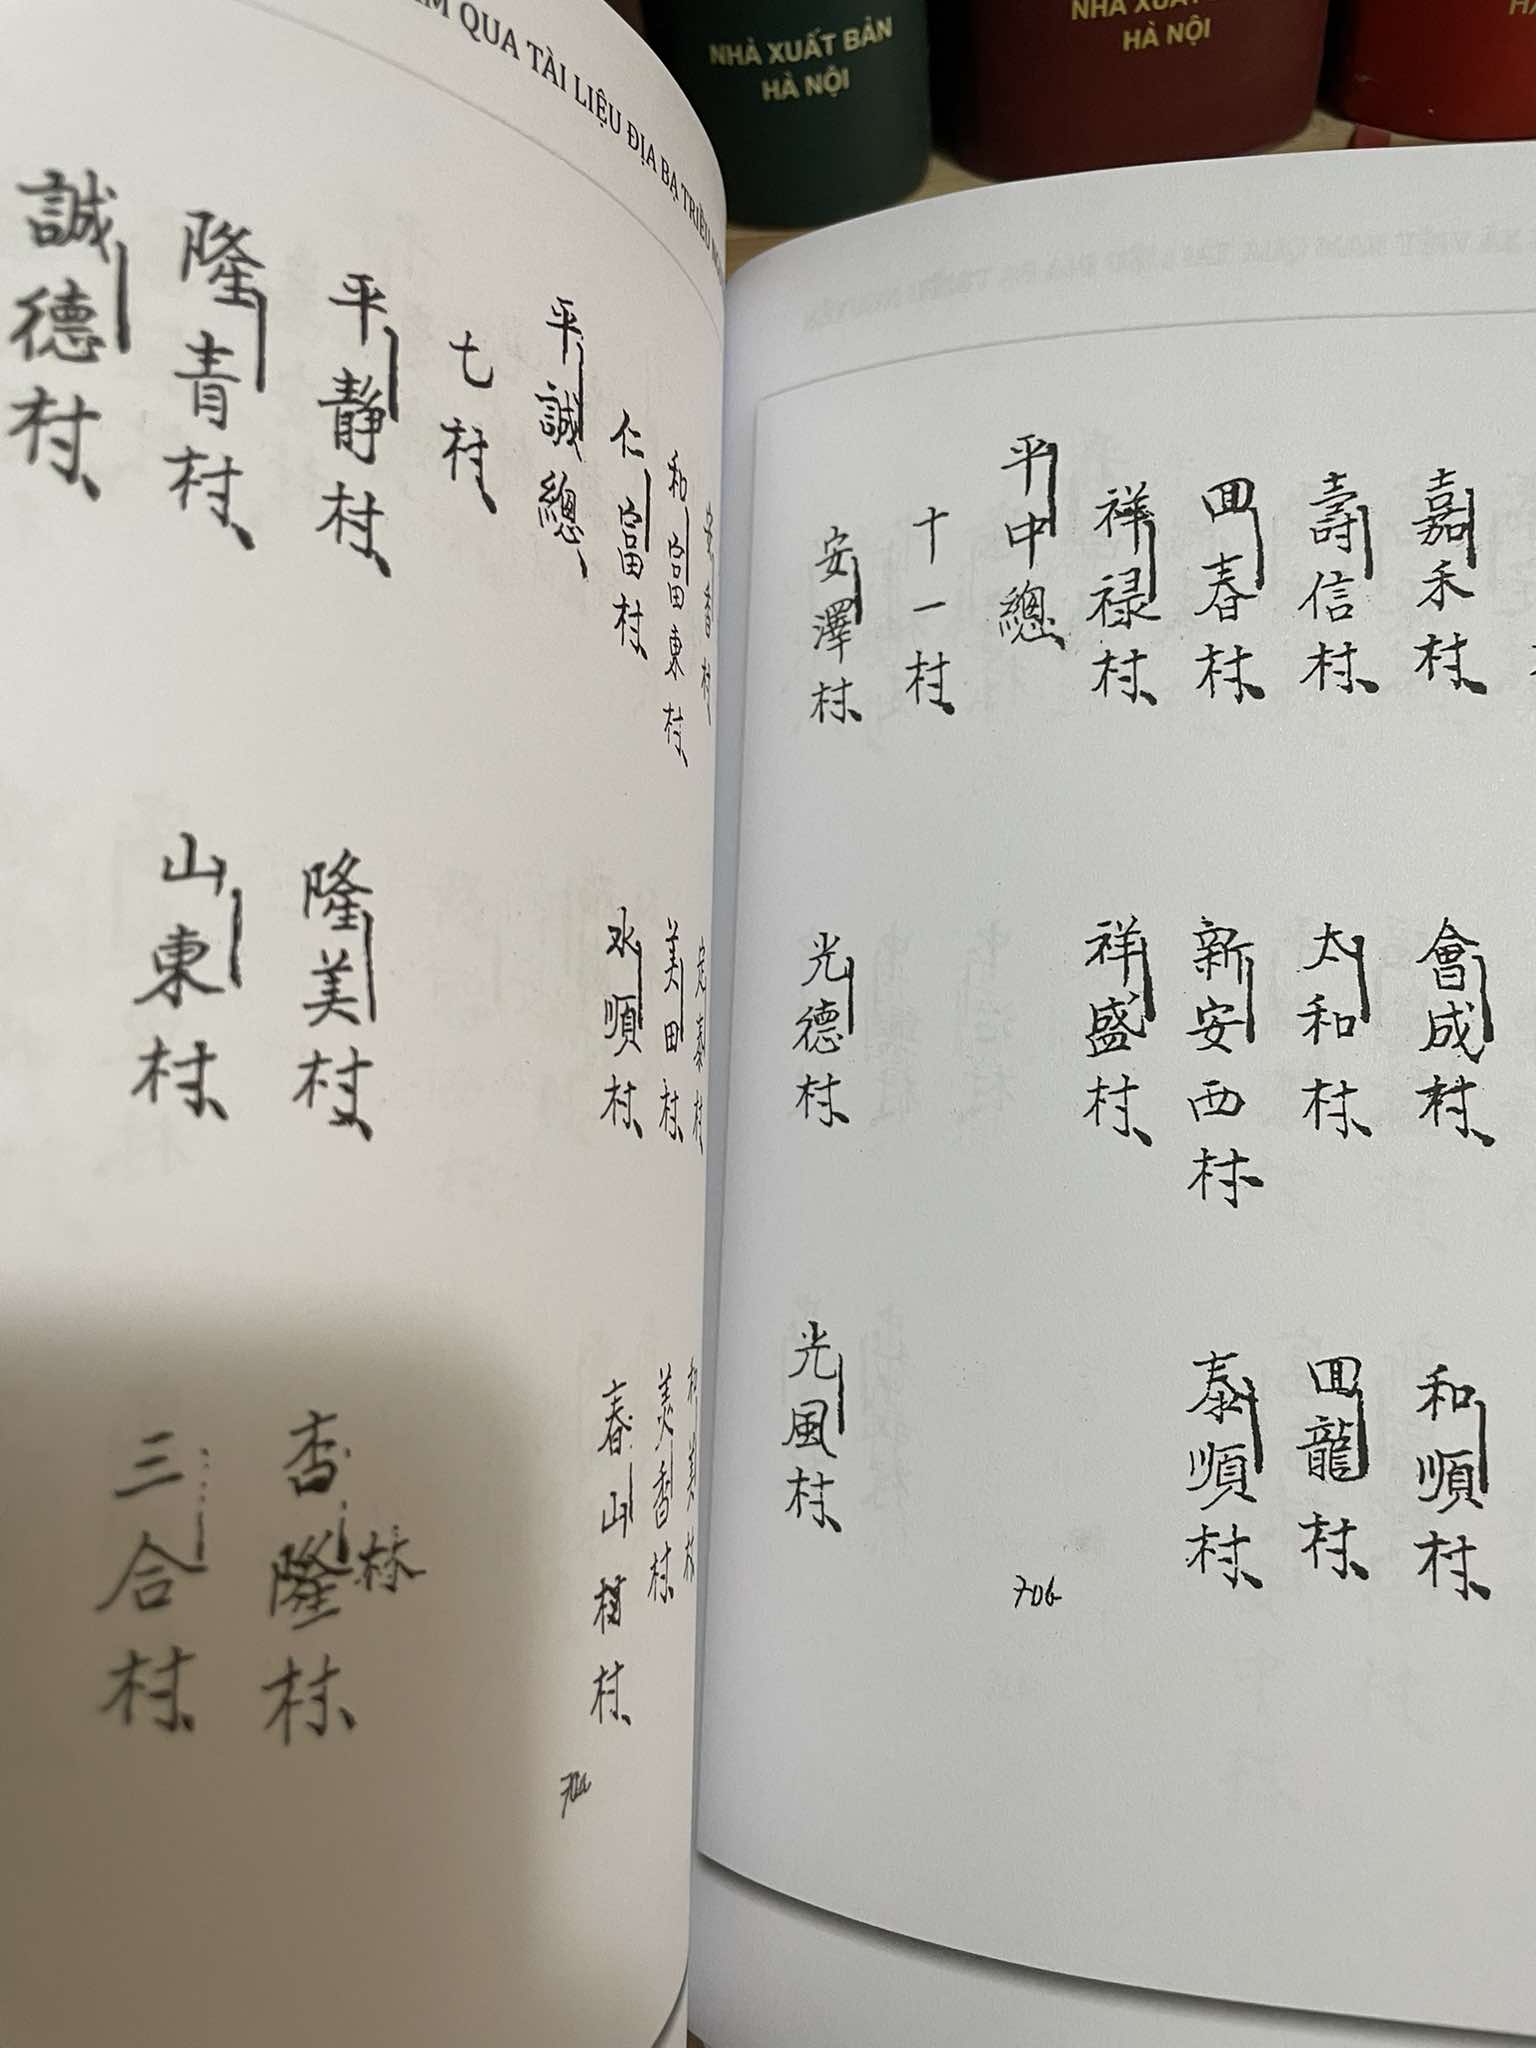 NHÀ XUẤT BẢN
HÀ NỘI
NHÀ XUẤT BẢN
HÀ NỘI
QUA TÀI LIỆU ĐỊA BẠ TRIỀU
嘉禾村
會成村
和順村
壽信村
太和村
回龍村
回春村
新安西村
泰順村
祥禄村
祥盛村
平中總
十一村
安澤村
光德村
光風村
706
安香村
定泰村
和美村
和富東村
美田村
美香村
仁富村
水順村
春山村
平誠總
七村
平靜村
隆美村
杏
林
村
隆青村
山東村
三合村
誠德村